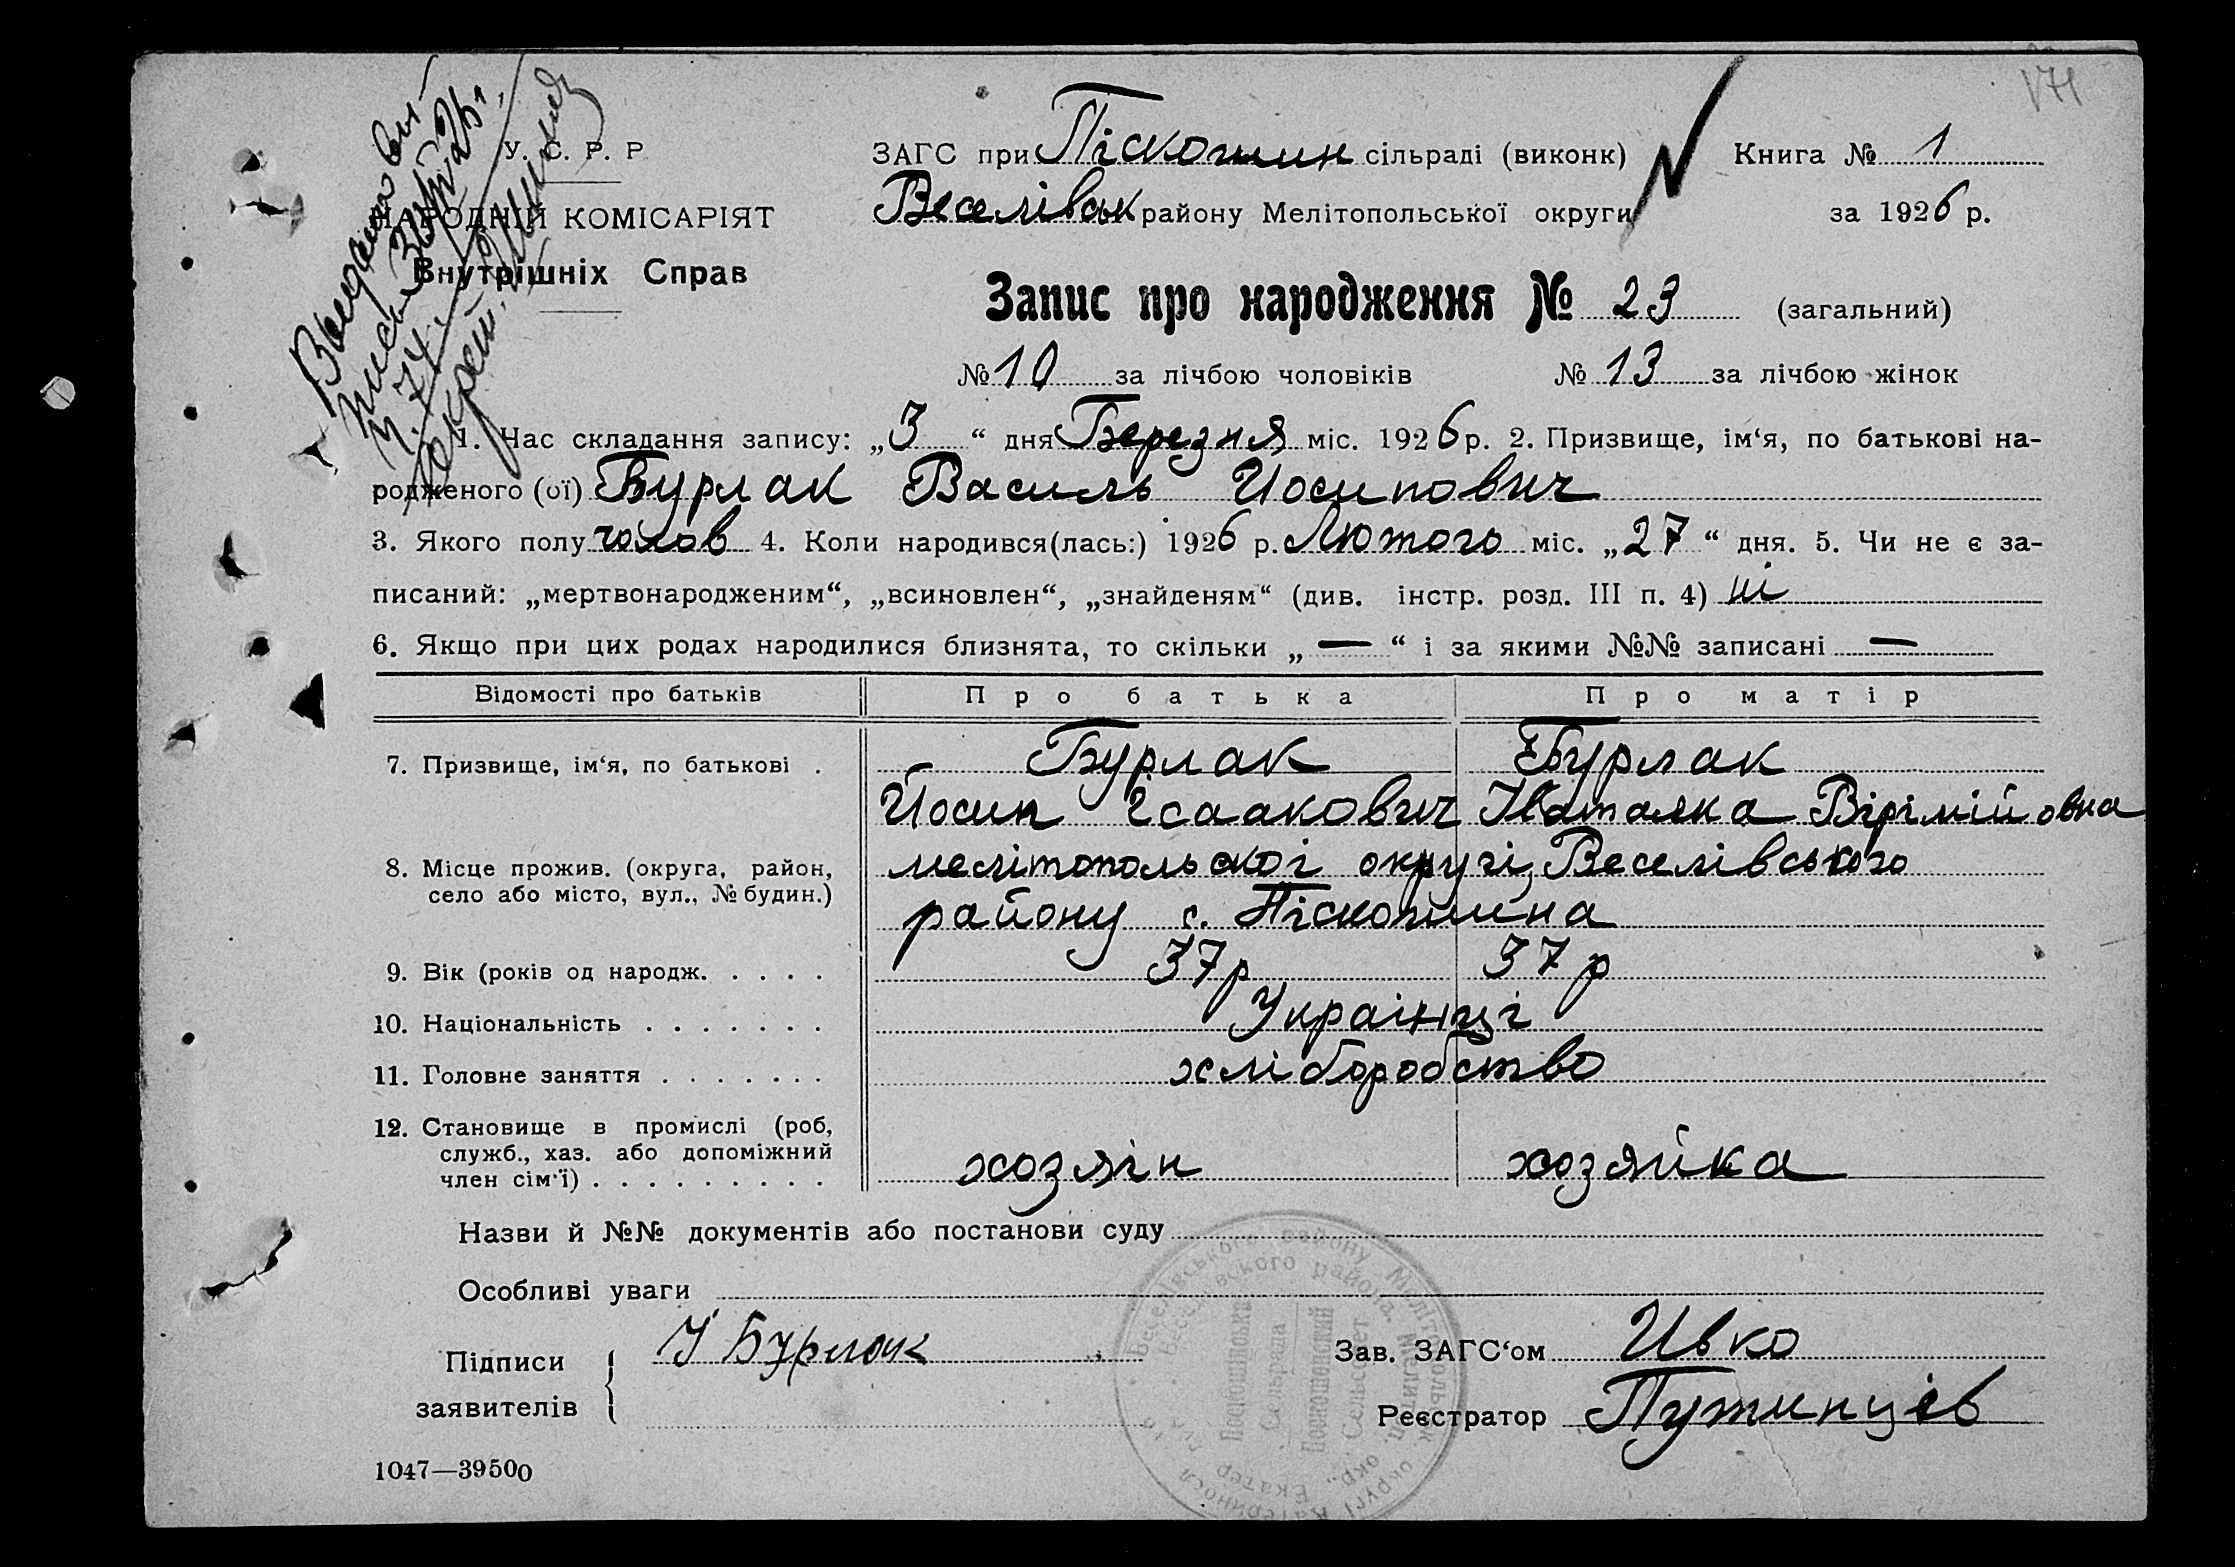 V71
У. С. Р. Р
НАРОДНІЙ КОМІСАРІЯТ
Внутрішніх Справ
ЗАГС при Піскошин сільраді (виконк) Книга № 1
Веселівськ району Мелітопольської округи за 1926 р.
Запис про народження № 23 (загальний)
№ 10 за лічбою чоловіків № 13 за лічбою жінок
1. Час складання запису: „3“ дня Березня міс. 1926 р. 2. Призвище, ім‘я, по батькові на-
родженого (ої) Бурлак Василь Йосипович
3. Якого полу чолов 4. Коли народився(лась:) 1926 р. Лютого міс. „27“ дня. 5. Чи не є за-
писаний: „мертвонародженим“, „всиновлен“, „знайденям“ (див. інстр. розд. III п. 4) ні
6. Якщо при цих родах народилися близнята, то скільки „ — “ і за якими №№ записані —
Відомості про батьків Про батька Про матір
7. Призвище, ім‘я, по батькові . Бурлак Бурлак
Йосип Ісаакович Вірімійовна
8. Місце прожив. (округа, район, мелітопольскоі округі, Веселівського
село або місто, вул., № будин.) району с. Піскошина
9. Вік (років од народж. . . . . 37р 37р
10. Національність . . . . . . . Украінці
11. Головне заняття . . . . . . . хліборобство
12. Становище в промислі (роб,
служб., хаз. або допоміжний
член сім‘ї) . . . . . . . . . хозяін хозяйка
Назви й №№ документів або постанови суду
Особливі уваги
Підписи заявителів Й Бурлак
Зав. ЗАГС‘ом Ивко
Реєстратор Путинцев
1047—39500